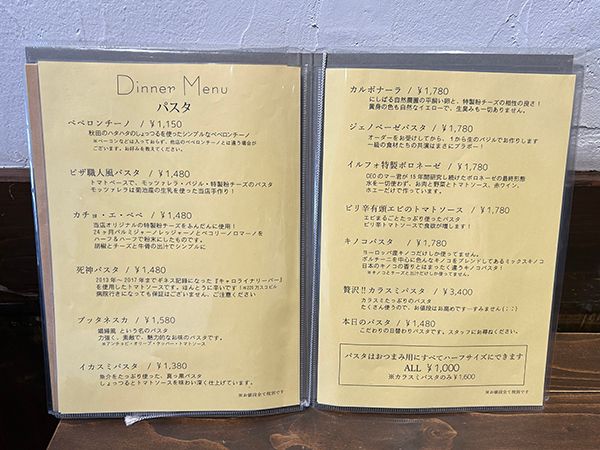 Dinner Menu
パスタ
ペペロンチーノ / ¥1,150
秋田のハタハタのしょっつるを使ったシンプルなペペロンチーノ
※ベーコンなどは入っておらず、他店のペペロンチーノとは違う場合が
ございます。お好みを教えてください。
ピザ職人風パスタ / ¥1,480
トマトベースで、モッツァレラ・バジル・特製粉チーズのパスタ
モッツァレラは菊池産の生乳を使った当店手作り!
カチョ・エ・ペペ / ¥1,480
当店オリジナルの特製粉チーズをふんだんに使用!
24ヶ月パルミジャーノレッジャーノとペコリーノロマーノを
ハーフ&ハーフで粉末にしたものです。
胡椒とチーズと牛骨の出汁でシンプルに
死神パスタ / ¥1,480
2013年〜2017年までギネス記録になった【キャロライナリーパー】
を使用したトマトソースです。ほんとうに辛いです!※220万スコビル
病院行きになっても保証はございません、ご注意ください
プッタネスカ / ¥1,580
娼婦風 という名のパスタ
力強く、素敵で、魅力的なお味のパスタです。
※アンチョビ・オリーブ・ケッパー・トマトソース
イカスミパスタ / ¥1,380
魚介をたっぷり使った、真っ黒パスタ
しょっつるとトマトソースを味わい深く仕上げています。
※お値段全て税別です
カルボナーラ / ¥1,780
にしばる自然農園の平飼い卵と、特製粉チーズの相性の良さ!
黄身の色も自然なイエローで、生臭みも一切ありません。
ジェノベーゼパスタ / ¥1,780
オーダーをお受けしてから、1から生のバジルでお作りします
一級の食材たちの共演はまさにブラボー!
イルフォ特製ボロネーゼ / ¥1,780
CEOのマー君が15年間研究し続けたボロネーゼの最終形態
水を一切使わず、お肉と野菜とトマトソース、赤ワイン、
ホエーだけでこれを作りました。
ピリ辛有頭エビのトマトソース / ¥1,780
エビまるごとたっぷり使ったパスタ
ピリ辛トマトソースで食欲が増します!
キノコパスタ / ¥1,780
ヨーロッパ産キノコだけしか使ってません。
ポルチーニを中心に色んなキノコをブレンドしてあるミックスキノコ
日本のキノコの香りとはまったく違うキノコパスタ!
※キノコとチーズと出汁だけしか使ってません。
贅沢!!カラスミパスタ / ¥3,400
カラスミたっぷりのパスタ
たくさん使うので、お値段はお高めです…すみません(;;)
本日のパスタ / ¥1,480
こだわりの日替わりパスタです。スタッフにお尋ねください。
パスタはおつまみ用にすべてハーフサイズにできます
ALL ¥1,000
※カラスミパスタのみ¥1,600
※お値段全て税別です